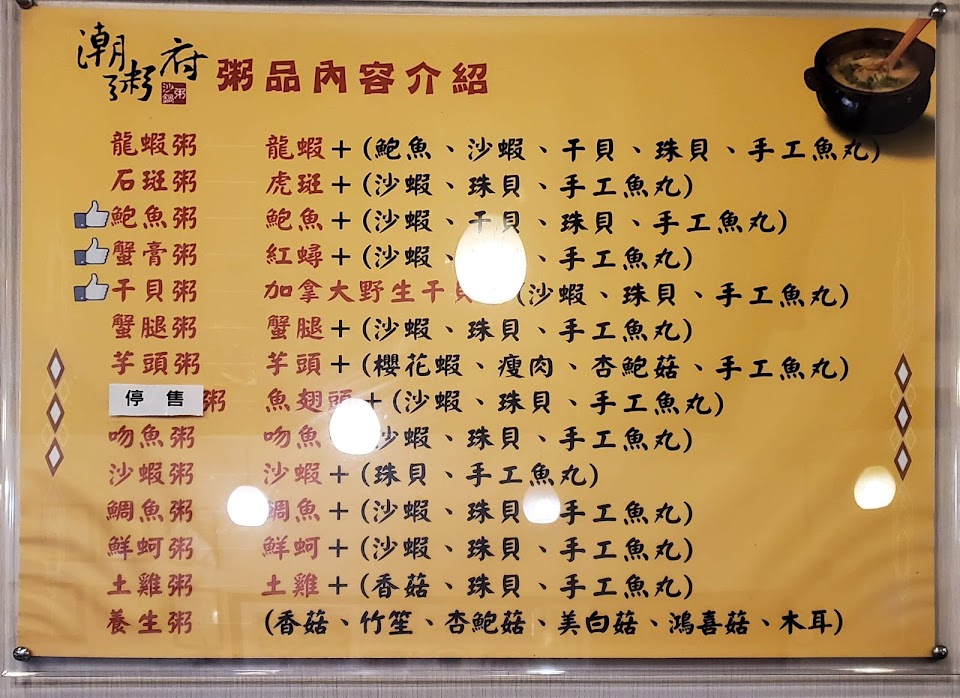 潮粥府 沙鍋粥 粥品內容介紹
龍蝦粥 龍蝦+(鮑魚、沙蝦、干貝、珠貝、手工魚丸)
石斑粥 虎斑+(沙蝦、珠貝、手工魚丸)
鮑魚粥 鮑魚+(沙蝦、干貝、珠貝、手工魚丸)
蟹膏粥 紅蟳+(沙蝦、、手工魚丸)
干貝粥 加拿大野生干貝(沙蝦、珠貝、手工魚丸)
蟹腿粥 蟹腿+(沙蝦、珠貝、手工魚丸)
芋頭粥 芋頭+(櫻花蝦、瘦肉、杏鮑菇、手工魚丸)
停售粥 魚翅頭+(沙蝦、珠貝、手工魚丸)
吻魚粥 吻魚沙蝦、珠貝、手工魚丸)
沙蝦粥 沙蝦+(珠貝、手工魚丸)
鯛魚粥 鯛魚+(沙蝦、珠貝、手工魚丸)
鮮蚵粥 鮮蚵+(沙蝦、珠貝、手工魚丸)
土雞粥 土雞+(香菇、珠貝、手工魚丸)
養生粥 (香菇、竹笙、杏鮑菇、美白菇、鴻喜菇、木耳)